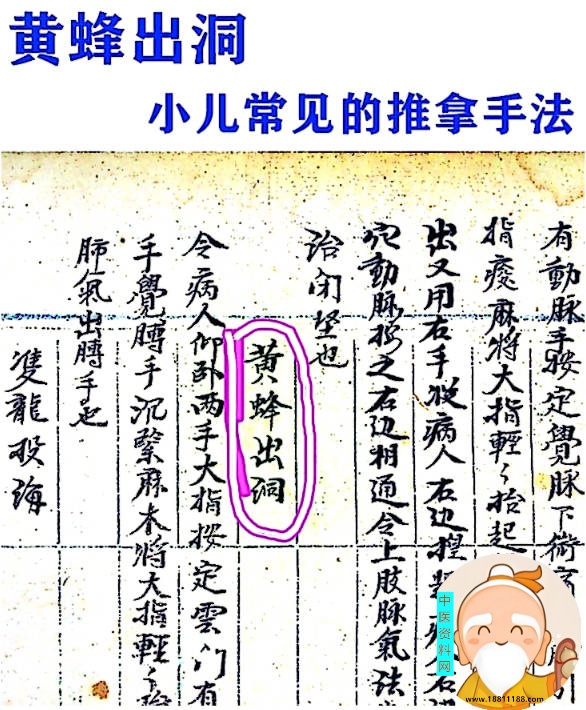 黄蜂出洞
小儿常见的推拿手法
有動脉手按定覺脉下衝
指痠麻將大指輕々抬起
出又用右手從病人右边
穴動脉按之右边相通令上肢脉氣法
治闭坚也
黄蜂出洞
令病人仰卧两手大指按定雲门有
手覺膊手沉緊麻木將大指輕々抬
肺氣出膊手也
雙龍投海
中医资料网
www.18811188.com